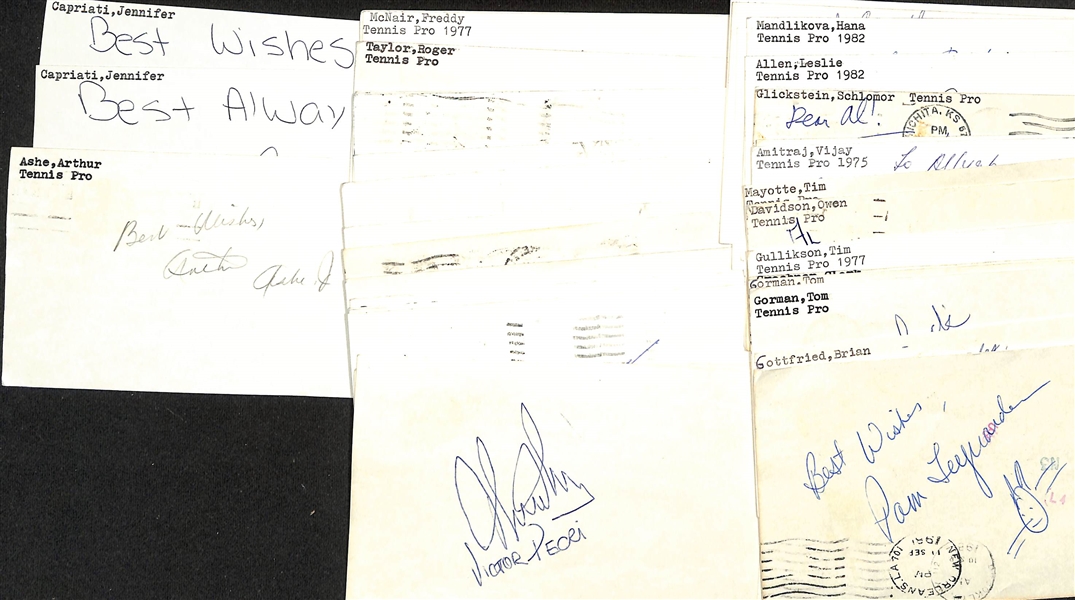 Capriati,Jennifer
Best Wishes
Capriati,Jennifer
Best Alway
Ashe,Arthur
Tennis Pro
Best Wishes,
Ashe
McNair,Freddy
Tennis Pro 1977
Taylor,Roger
Tennis Pro
VICTOR PECCI
Mandlikova,Hana
Tennis Pro 1982
Allen,Leslie
Tennis Pro 1982
Glickstein,Schlomor Tennis Pro
Dear Al!
CHITA, KS 67
PM
Amitraj,Vijay
Tennis Pro 1975
To
Mayotte,Tim
Davidson,Owen
Tennis Pro
Gullikson,Tim
Tennis Pro 1977
Gorman,Tom
Gorman,Tom
Tennis Pro
Gottfried,Brian
Best Wishes,
Pam
NEW ORLEANS, LA 701
PM
11 SEP